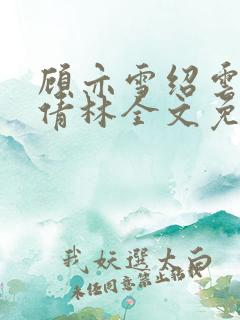 顾亦雪绍雲
倩林全文免
我妖選大白
未经同意禁止转载